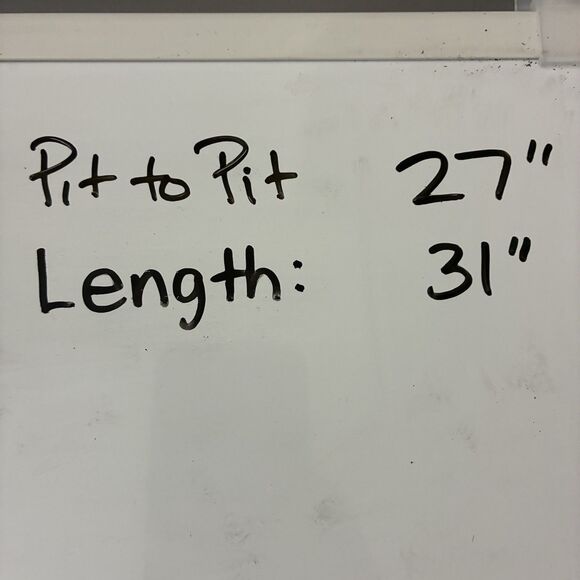 Pit to Pit 27"
Length: 31"